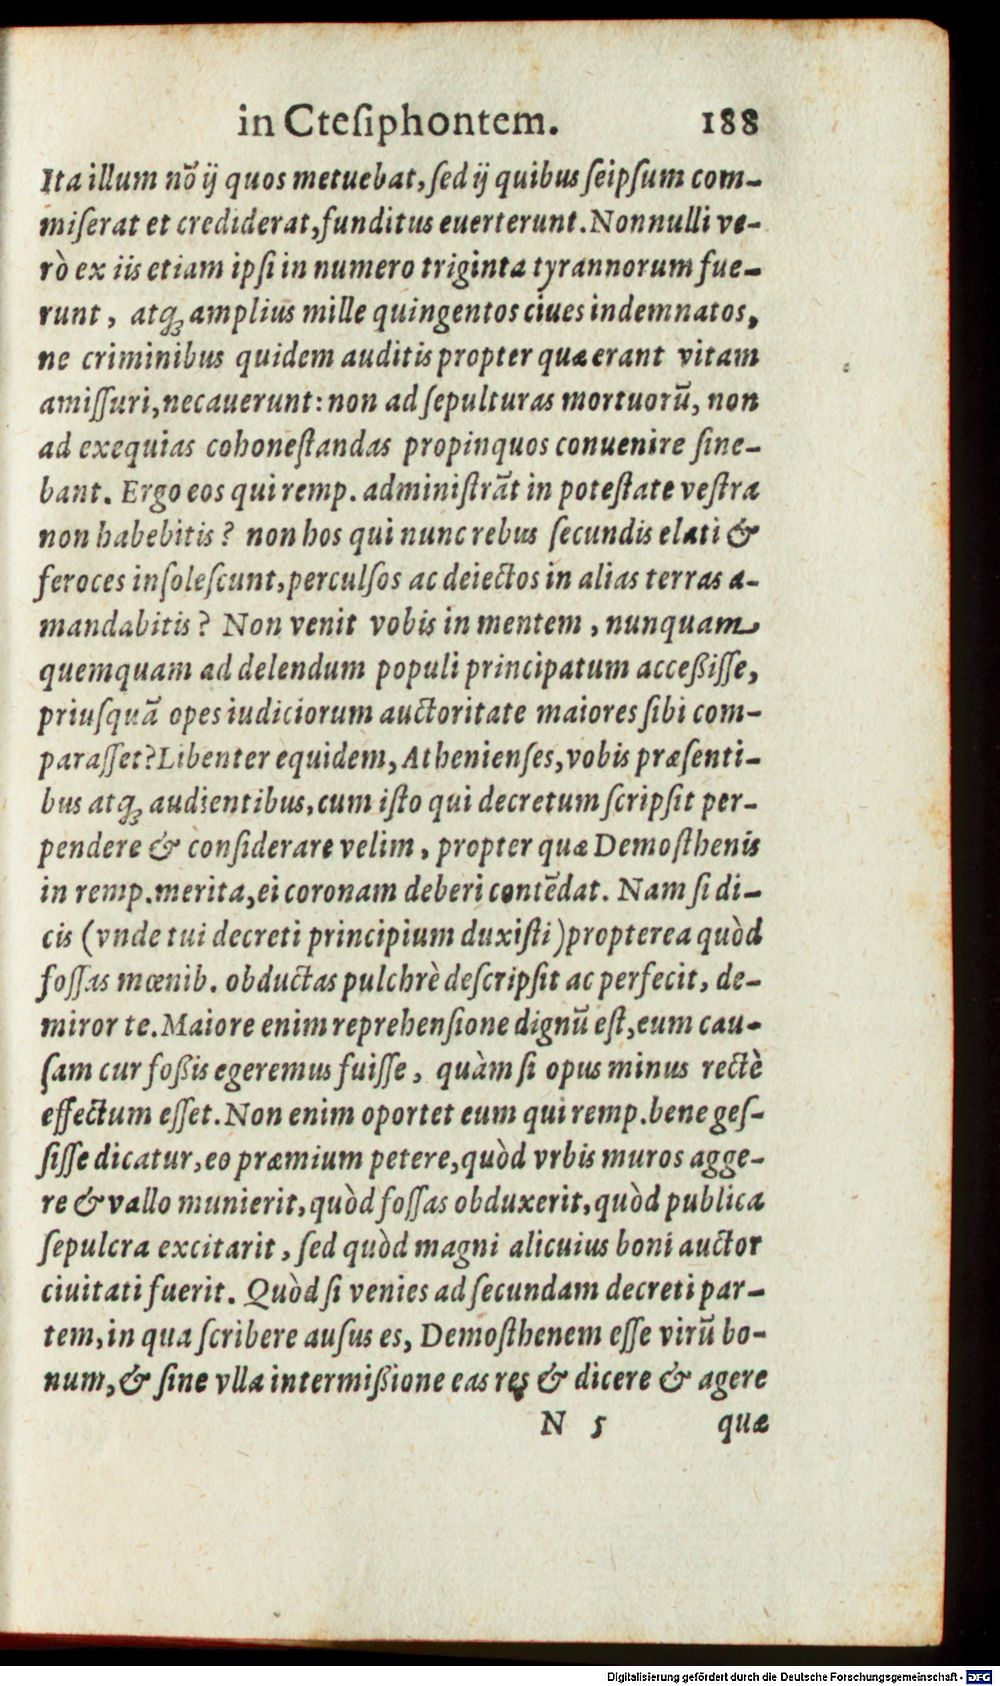 in Cteſiphontem. 188
Ita illum nõ ij quos metuebat, ſed ij quibus ſeipſum com-
miſerat et crediderat, funditus euerterunt. Nonnulli ve-
rò ex iis etiam ipſi in numero triginta tyrannorum fue-
runt, atqꝫ amplius mille quingentos ciues indemnatos,
ne criminibus quidem auditis propter quæ erant vitam
amiſſuri, necauerunt: non ad ſepulturas mortuorũ, non
ad exequias cohoneſtandas propinquos conuenire ſine-
bant. Ergo eos qui remp. adminiſtrãt in poteſtate veſtra
non habebitis? non hos qui nunc rebus ſecundis elati &
feroces inſoleſcunt, perculſos ac deiectos in alias terras a-
mandabitis? Non venit vobis in mentem, nunquam
quemquam ad delendum populi principatum acceßiſſe,
priuſquã opes iudiciorum auctoritate maiores ſibi com-
paraſſet? Libenter equidem, Athenienſes, vobis præſenti-
bus atqꝫ audientibus, cum iſto qui decretum ſcripſit per-
pendere & conſiderare velim, propter quæ Demoſthenis
in remp. merita, ei coronam deberi contẽdat. Nam ſi di-
cis (vnde tui decreti principium duxiſti) propterea quòd
foſſas mœnib. obductas pulchrè deſcripſit ac perfecit, de-
miror te. Maiore enim reprehenſione dignũ eſt, eum cau-
ſam cur foßis egeremus fuiſſe, quàm ſi opus minus rectè
effectum eſſet. Non enim oportet eum qui remp. bene geſ-
ſiſſe dicatur, eo præmium petere, quòd vrbis muros agge-
re & vallo munierit, quòd foſſas obduxerit, quòd publica
ſepulcra excitarit, ſed quòd magni alicuius boni auctor
ciuitati fuerit. Quòd ſi venies ad ſecundam decreti par-
tem, in qua ſcribere auſus es, Demoſthenem eſſe virũ bo-
num, & ſine vlla intermißione eas res & dicere & agere
N 5 quæ
Digitalisierung gefördert durch die Deutsche Forschungsgemeinschaft - DFG